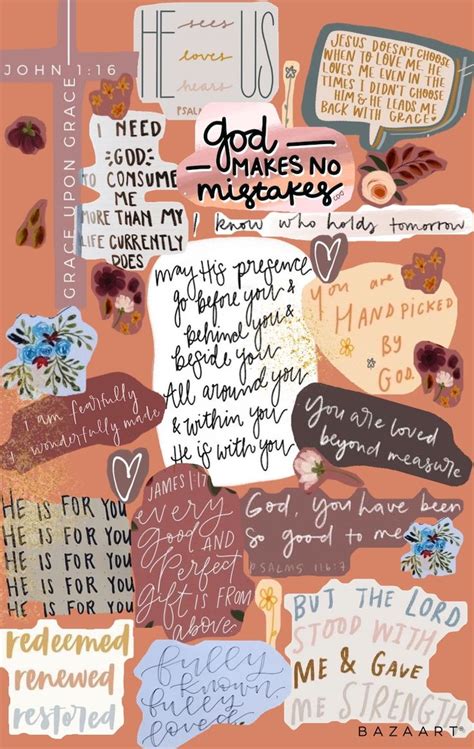 HE
sees
loves
hears
US
PSALM
JESUS DOESN'T CHOOSE
WHEN TO LOVE ME. HE
LOVES ME EVEN IN THE
TIMES I DIDN'T CHOOSE
HIM & HE LEADS ME
BACK WITH GRACE
JOHN 1:16
GRACE UPON GRACE
I NEED
GOD
TO CONSUME
ME
MORE THAN MY
LIFE CURRENTLY
DOES
god
MAKES NO
mistakes
I know who holds tomorrow
may His presence
go before you &
behind you &
beside you
All around you
& within you
He is with you
you are
HANDPICKED
BY
GOD.
I am fearfully
& wonderfully made
you are loved
beyond measure
HE IS FOR YOU
HE IS FOR YOU
HE IS FOR YOU
HE IS FOR YOU
JAMES 1:17
every
good AND
perfect
gift is FROM
above
God, you have been
so good to me
PSALMS 116:7
redeemed
renewed
restored
fully
known,
fully
loved.
BUT THE LORD
STOOD WITH
ME & GAVE
ME STRENGTH
BAZAART